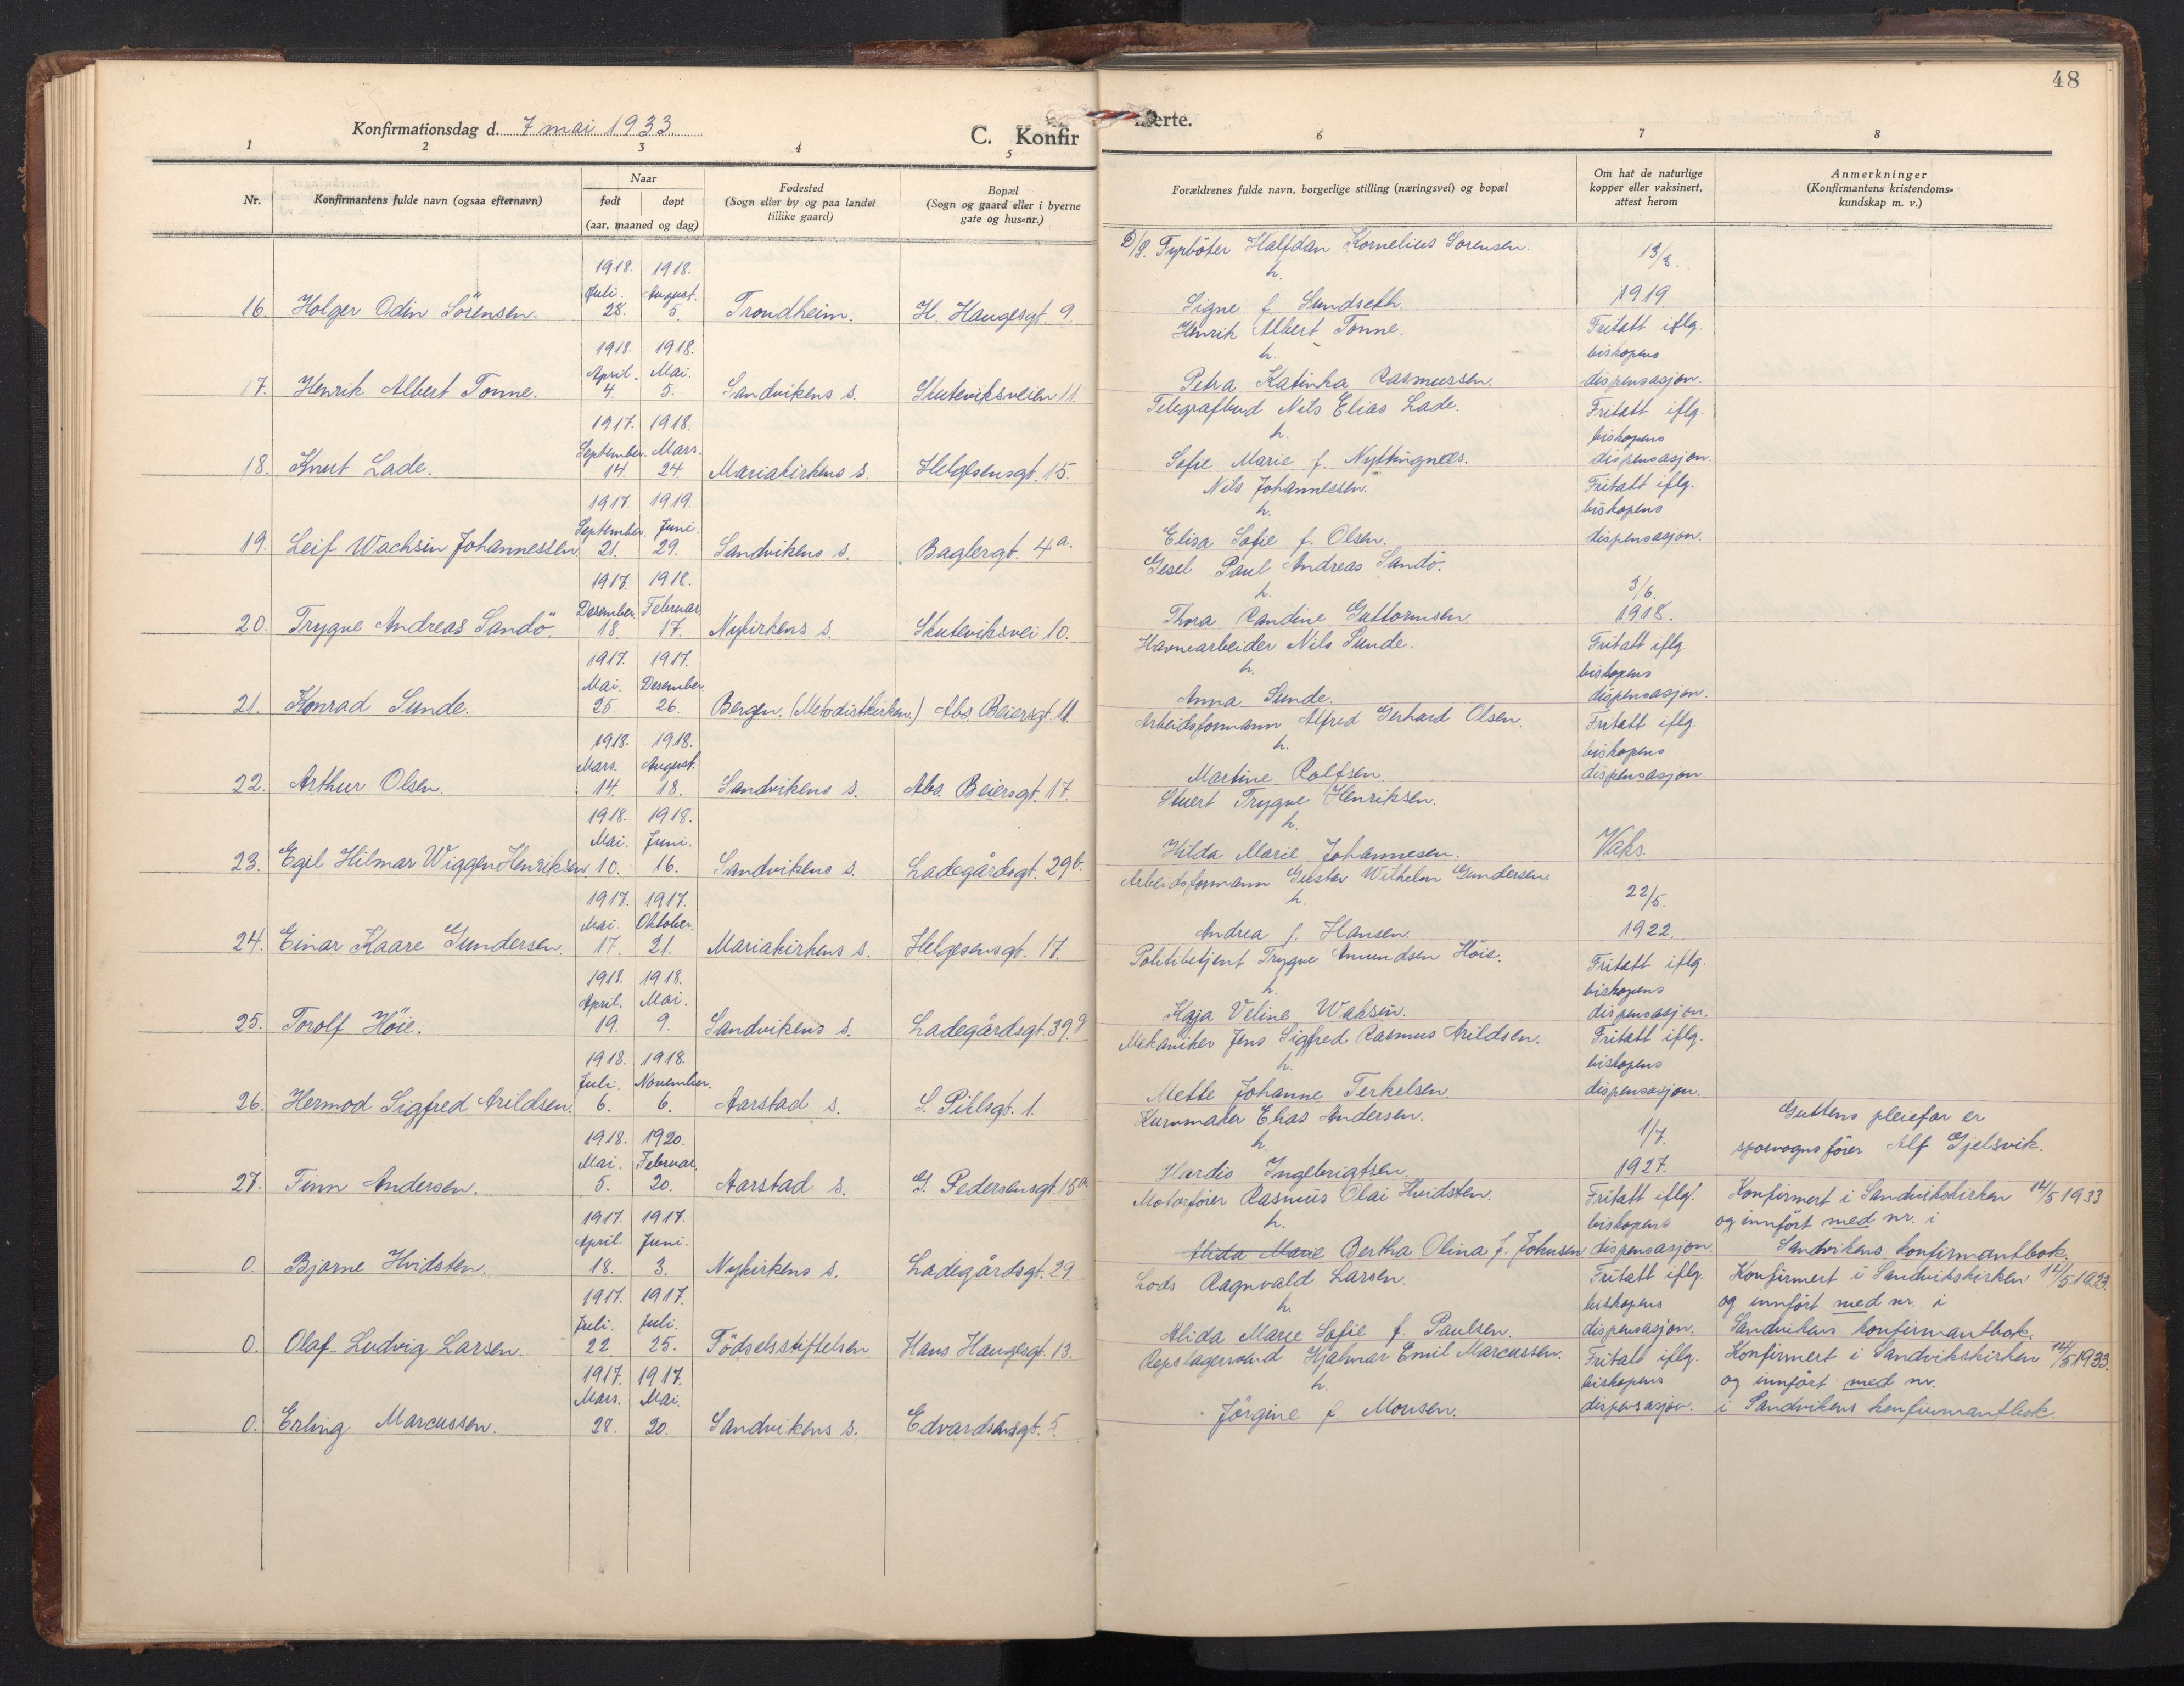 48
Konfirmationsdag d. 7 mai 1933.
C. Konfir
erte.
1 2 3 4 5 6 7 8
Nr.
Konfirmantens fulde navn (ogsaa efternavn)
Naar
født
døpt
(aar, maaned og dag)
Fødested
(Sogn eller by og paa landet
tillike gaard)
Bopæl
(Sogn og gaard eller i byerne
gate og hus-nr.)
Forældrenes fulde navn, borgerlige stilling (næringsvei) og bopæl
Om hat de naturlige
kopper eller vaksinert,
attest herom
Anmerkninger
(Konfirmantens kristendoms-
kundskap m. v.)
D/S. Fyrböter Halfdan Kornelius Sörensen.
1918. 1918. h. 13/8.
Juli. August. 1919.
16. Holger Odin Sörensen. 28. 5. Trondheim. H. Haugesgt. 9. Signe f. Sundseth.
Henrik Albert Tonne. Fritatt iflg.
1918. 1918. h. biskopens
April. Mai.
17. Henrik Albert Tonne. 4. 5. Sandvikens s. Skuteviksveien 11. Petra Katinka Rasmussen. dispensasjon.
Telegrafbud Nils Elias Lade. Fritatt iflg.
1917. 1918. h. biskopens
September. Mars.
18. Knut Lade. 14. 24. Mariakirkens s. Helgesensgt. 15. Sofie Marie f. Nyttingnes. dispensasjon.
Nils Johannessen. Fritatt iflg.
1917. 1919. h. biskopens
September. Juni.
19. Leif Wachsin Johannessen 21. 29. Sandvikens s. Baglergt. 4a. Elisa Sofie f. Olsen. dispensasjon.
Gesel Paul Andreas Sandö.
1917. 1918. h. 3/6.
Desember. Februar.
20. Trygve Andreas Sandö. 18. 17. Nykirkens s. Skuteviksvei 10. Thora Randine Guttormsen. 1918.
Havnearbeider Nils Sunde. Fritatt iflg.
1917. 1917. h. biskopens
Mai. Desember.
21. Konrad Sunde. 25. 26. Bergen. (Metodistkirken.) Abs. Beiersgt. 11 Anna Sunde. dispensasjon.
Arbeidsformann Alfred Gerhard Olsen. Fritatt iflg.
1918. 1918. h. biskopens
Mars. August.
22. Arthur Olsen. 14. 18. Sandvikens s. Abs. Beiersgt. 17. Martine Rolfsen. dispensasjon.
Stuert Trygve Henriksen.
1918. 1918. h.
Mai. Juni.
23. Egil Hilmar Wiggen Henriksen. 10. 16. Sandvikens s. Ladegårdsgt. 29b. Hilda Marie Johannesen. Vaks.
Arbeidsformann Gustav Wilhelm Gundersen.
1917. 1917. h. 22/5.
Mai. Oktober.
24. Einar Kaare Gundersen. 17. 21. Mariakirkens s. Helgesensgt. 17. Andrea f. Hansen. 1922.
Politibetjent Trygve Amundsen Höie. Fritatt iflg.
1918. 1918. h. biskopens
April. Mai.
25. Torolf Höie. 19. 9. Sandvikens s. Ladegårdsgt. 39 Kaja Veline Waksin. dispensasjon.
Mekaniker Jens Sigfred Rasmus Arildsen. Fritatt iflg.
1918. 1918. h. biskopens
Juli. November.
26. Hermod Sigfred Arildsen. 6. 6. Aarstad s. S. Pihlsgt. 1. Mette Johanne Terkelsen. dispensasjon.
Kurvmaker Elias Andersen. Guttens pleiefar er
1918. 1920. h. 1/7. sporvognsförer Alf Gjelsvik.
Mai. Februar.
27. Finn Andersen. 5. 20. Aarstad s. G. Pedersensgt. 15a. Hardis Ingebrigtsen. 1927.
Motorförer Rasmus Olai Hvidsten. Fritatt iflg. Konfirmert i Sandvikskirken 14/5 1933
1917. 1917. h. biskopens og innfört med nr. i
April. Juni.
0. Bjarne Hvidsten. 18. 3. Nykirkens s. Ladegårdsgt. 29 Alida Marie Bertha Olina f. Johnsen dispensasjon. Sandvikens konfirmantbok.
Lods Ragnvald Larsen. Fritatt iflg. Konfirmert i Sandvikskirken 14/5 1933.
1917. 1917. h. biskopens og innfört med nr. i
Juli. Juli.
0. Olaf Ludvig Larsen. 22 25. Födselsstiftelsen. Hans Haugesgt. 13. Alida Marie Sofie f. Paulsen. dispensasjon. Sandvikens konfirmantbok.
Repslagersvend Hjalmar Emil Marcussen. Fritatt iflg. Konfirmert i Sandvikskirken 14/5 1933.
1917. 1917. h. biskopens og innfört med nr.
Mars. Mai.
0. Erling Marcussen. 28. 20. Sandvikens s. Edvardsensgt. 5. Jörgine f. Monsen. dispensasjon. i Sandvikens konfirmantbok.